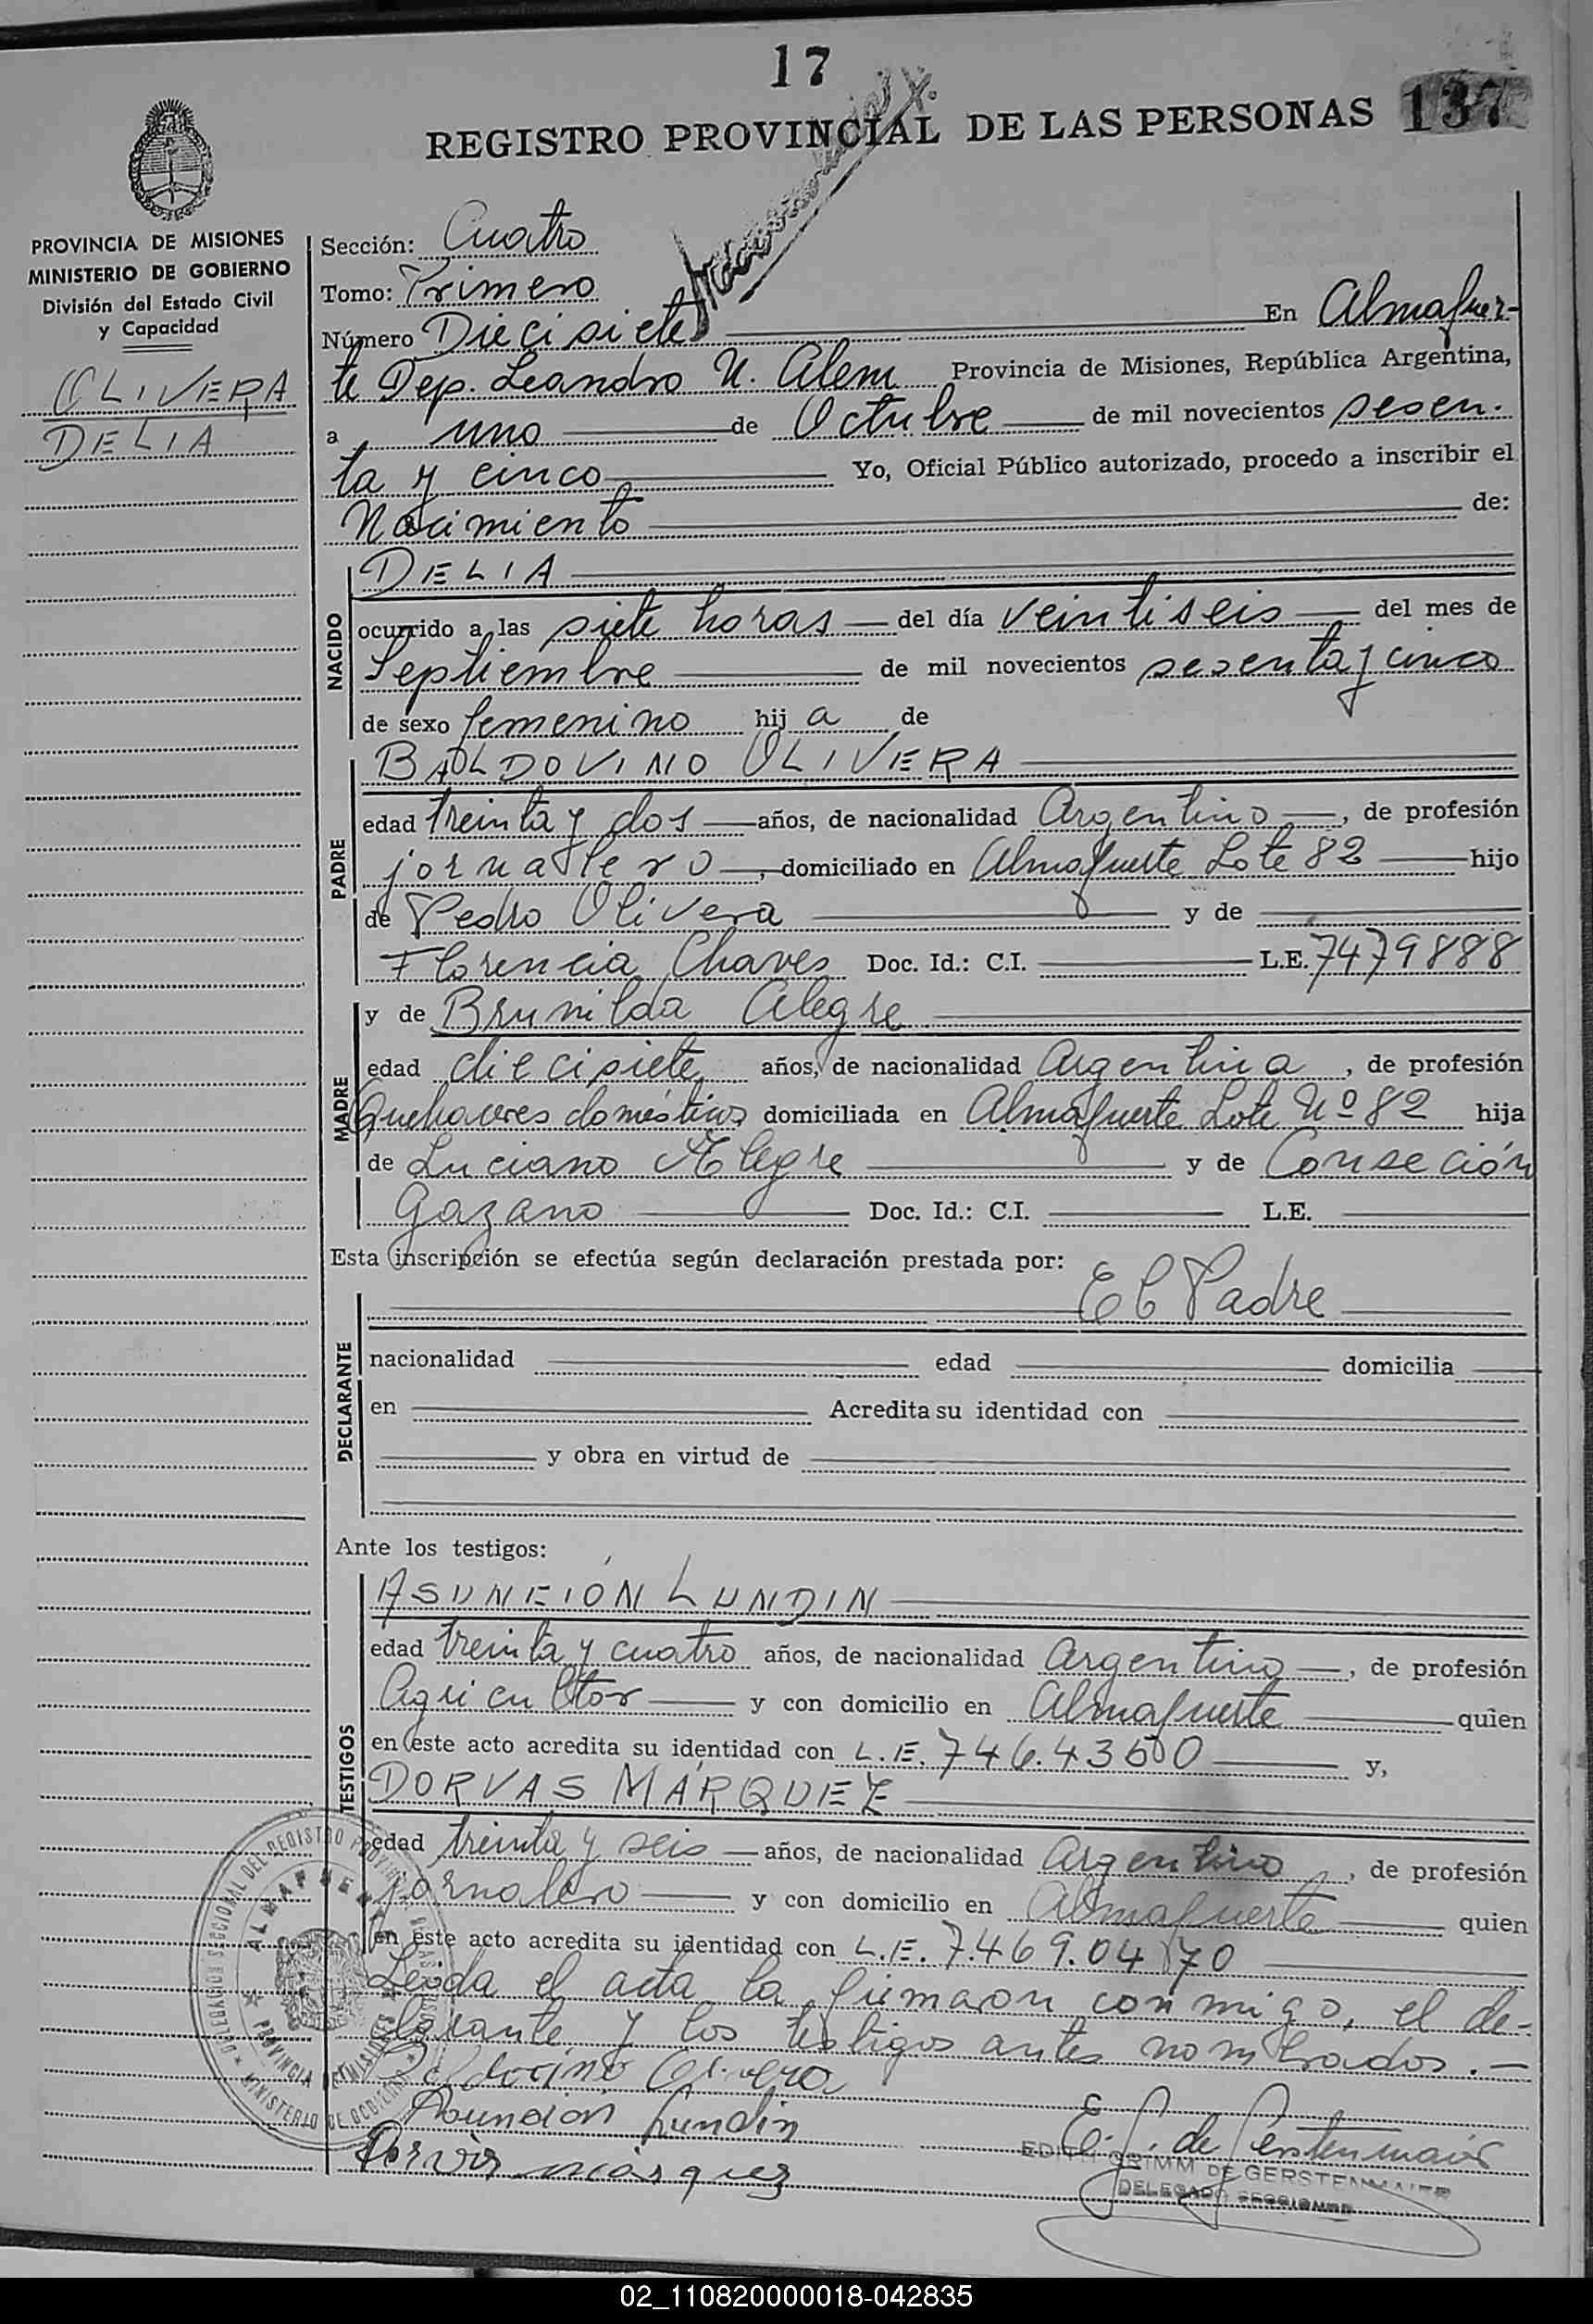 17
REGISTRO PROVINCIAL DE LAS PERSONAS 137
PROVINCIA DE MISIONES
MINISTERIO DE GOBIERNO
División del Estado Civil
y Capacidad
OLIVERA
DELIA
Sección: Cuatro
Tomo: Primero
Número Diecisiete En Almafuer-
te Dep. Leandro N. Alem Provincia de Misiones, República Argentina,
a uno de Octubre de mil novecientos sesen-
ta y cinco Yo, Oficial Público autorizado, procedo a inscribir el
Nacimiento de:
NACIDO
DELIA
ocurrido a las siete horas del día veintiseis del mes de
Septiembre de mil novecientos sesenta y cinco
de sexo femenino hija de
PADRE
BALDOVINO OLIVERA
edad treinta y dos años, de nacionalidad Argentino, de profesión
jornalero, domiciliado en Almafuerte Lote 82 hijo
de Pedro Olivera y de
Florencia Chaves Doc. Id.: C.I. L.E. 7479888
MADRE
y de Brunilda Alegre
edad diecisiete años, de nacionalidad Argentina, de profesión
Quehaceres domésticos domiciliada en Almafuerte Lote Nº 82 hija
de Luciano Alegre y de Conseción
Gazano Doc. Id.: C.I. L.E.
Esta inscripción se efectúa según declaración prestada por:
El Padre
DECLARANTE
nacionalidad edad domicilia
en Acredita su identidad con
y obra en virtud de
Ante los testigos:
TESTIGOS
ASUNCIÓN LUNDIN
edad treinta y cuatro años, de nacionalidad Argentino, de profesión
Agricultor y con domicilio en Almafuerte quien
en este acto acredita su identidad con L.E. 746.4350 y,
DORVAS MÁRQUEZ
edad treinta y seis años, de nacionalidad Argentino, de profesión
jornalero y con domicilio en Almafuerte quien
en este acto acredita su identidad con L.E. 7.469.04 70
Leida el acta la firmaron conmigo, el de-
clarante y los testigos antes nombrados.-
Baldovino Olivera
Asuncion Lundin
Dorvas marquez
E. G. de Gerstenmaier
EDITH GRIMM DE GERSTENMAIER
DELEGADO SECCIONAL
DELEGACION SECCIONAL DEL REGISTRO PROVINCIAL DE LAS PERSONAS
ALMAFUERTE
PROVINCIA DE MISIONES
MINISTERIO DE GOBIERNO
02_110820000018-042835